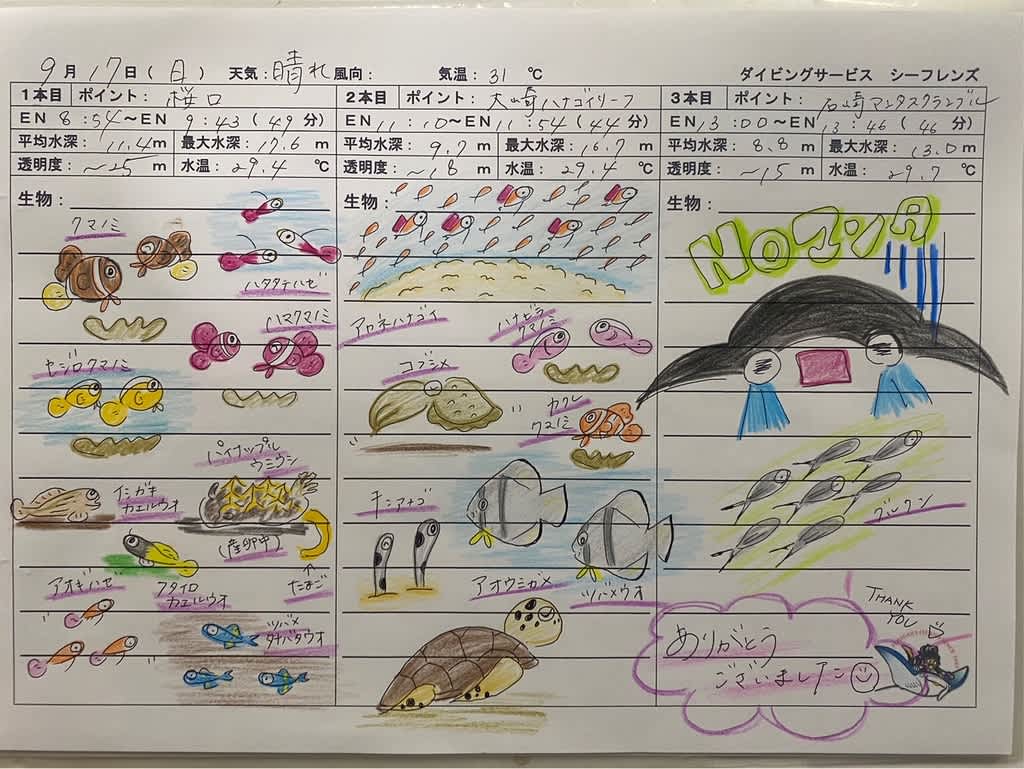 9月17日(日) 天気:晴れ 風向: 気温:31℃ ダイビングサービス シーフレンズ
1本目 ポイント:桜口
EN 8:54~EN 9:43(49分)
平均水深:11.4m 最大水深:17.6m
透明度:~25m 水温:29.4℃
生物:
クマノミ
ハタタテハゼ
ハマクマノミ
セジロクマノミ
パイナップル
ウミウシ
(産卵中)
たまご
イシガキ
カエルウオ
アオギハゼ
フタイロ
カエルウオ
ツバメ
タナバタウオ
2本目 ポイント:大崎ハナゴイリーフ
EN 11:10~EN 11:54(44分)
平均水深:9.7m 最大水深:16.7m
透明度:~18m 水温:29.4℃
生物:
アカネハナゴイ
ハナビラ
クマノミ
コブシメ
カクレ
クマノミ
チンアナゴ
アオウミガメ
ツバメウオ
3本目 ポイント:石崎マンタスクランブル
EN 13:00~EN 13:46(46分)
平均水深:8.8m 最大水深:13.0m
透明度:~15m 水温:29.7℃
生物:
NOマンタ
グルクン
THANK
YOU
ありがとう
ございました